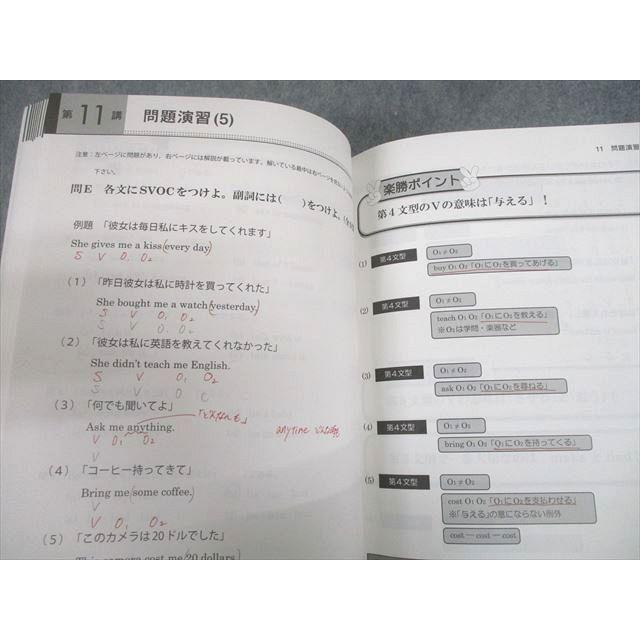 第 11 講 問題演習(5)
注意：左ページに問題があり，右ページには解説が載っています。解いている最中は右ページを
下さい。
問E 各文にSVOCをつけよ。副詞には( )をつけよ。
例題 「彼女は毎日私にキスをしてくれます」
She gives me a kiss (every day)
S V O₁ O₂
(1) 「昨日彼女は私に時計を買ってくれた」
She bought me a watch (yesterday)
S V O₁ O₂
S V O₁ O₂
(2) 「彼女は私に英語を教えてくれなかった」
She didn't teach me English.
S V O₁ O₂
S V O C
(3) 「何でも聞いてよ」
Ask me anything.
V O₁ O₂
anytime
(4) 「コーヒー持ってきて」
Bring me (some coffee.)
V
V O₁ O₂
(5) 「このカメラは20ドルでした」
camera cost me 20 dollars
11 問題演習
楽勝ポイント
第4文型のVの意味は「与える」！
(1) 第4文型 O₁≠O₂
buy O₁ O₂「O₁にO₂を買ってあげる」
(2) 第4文型 O₁≠O₂
teach O₁ O₂「O₁にO₂を教える」
※O₂は学問・楽器など
(3) 第4文型 O₁≠O₂
ask O₁ O₂「O₁にO₂を尋ねる」
(4) 第4文型 O₁≠O₂
bring O₁ O₂「O₁にO₂を持ってくる」
(5) 第4文型 O₁≠O₂
cost O₁ O₂「O₁にO₂を支払わせる」
※「与える」の意にならない例外
cost ― cost ― cost